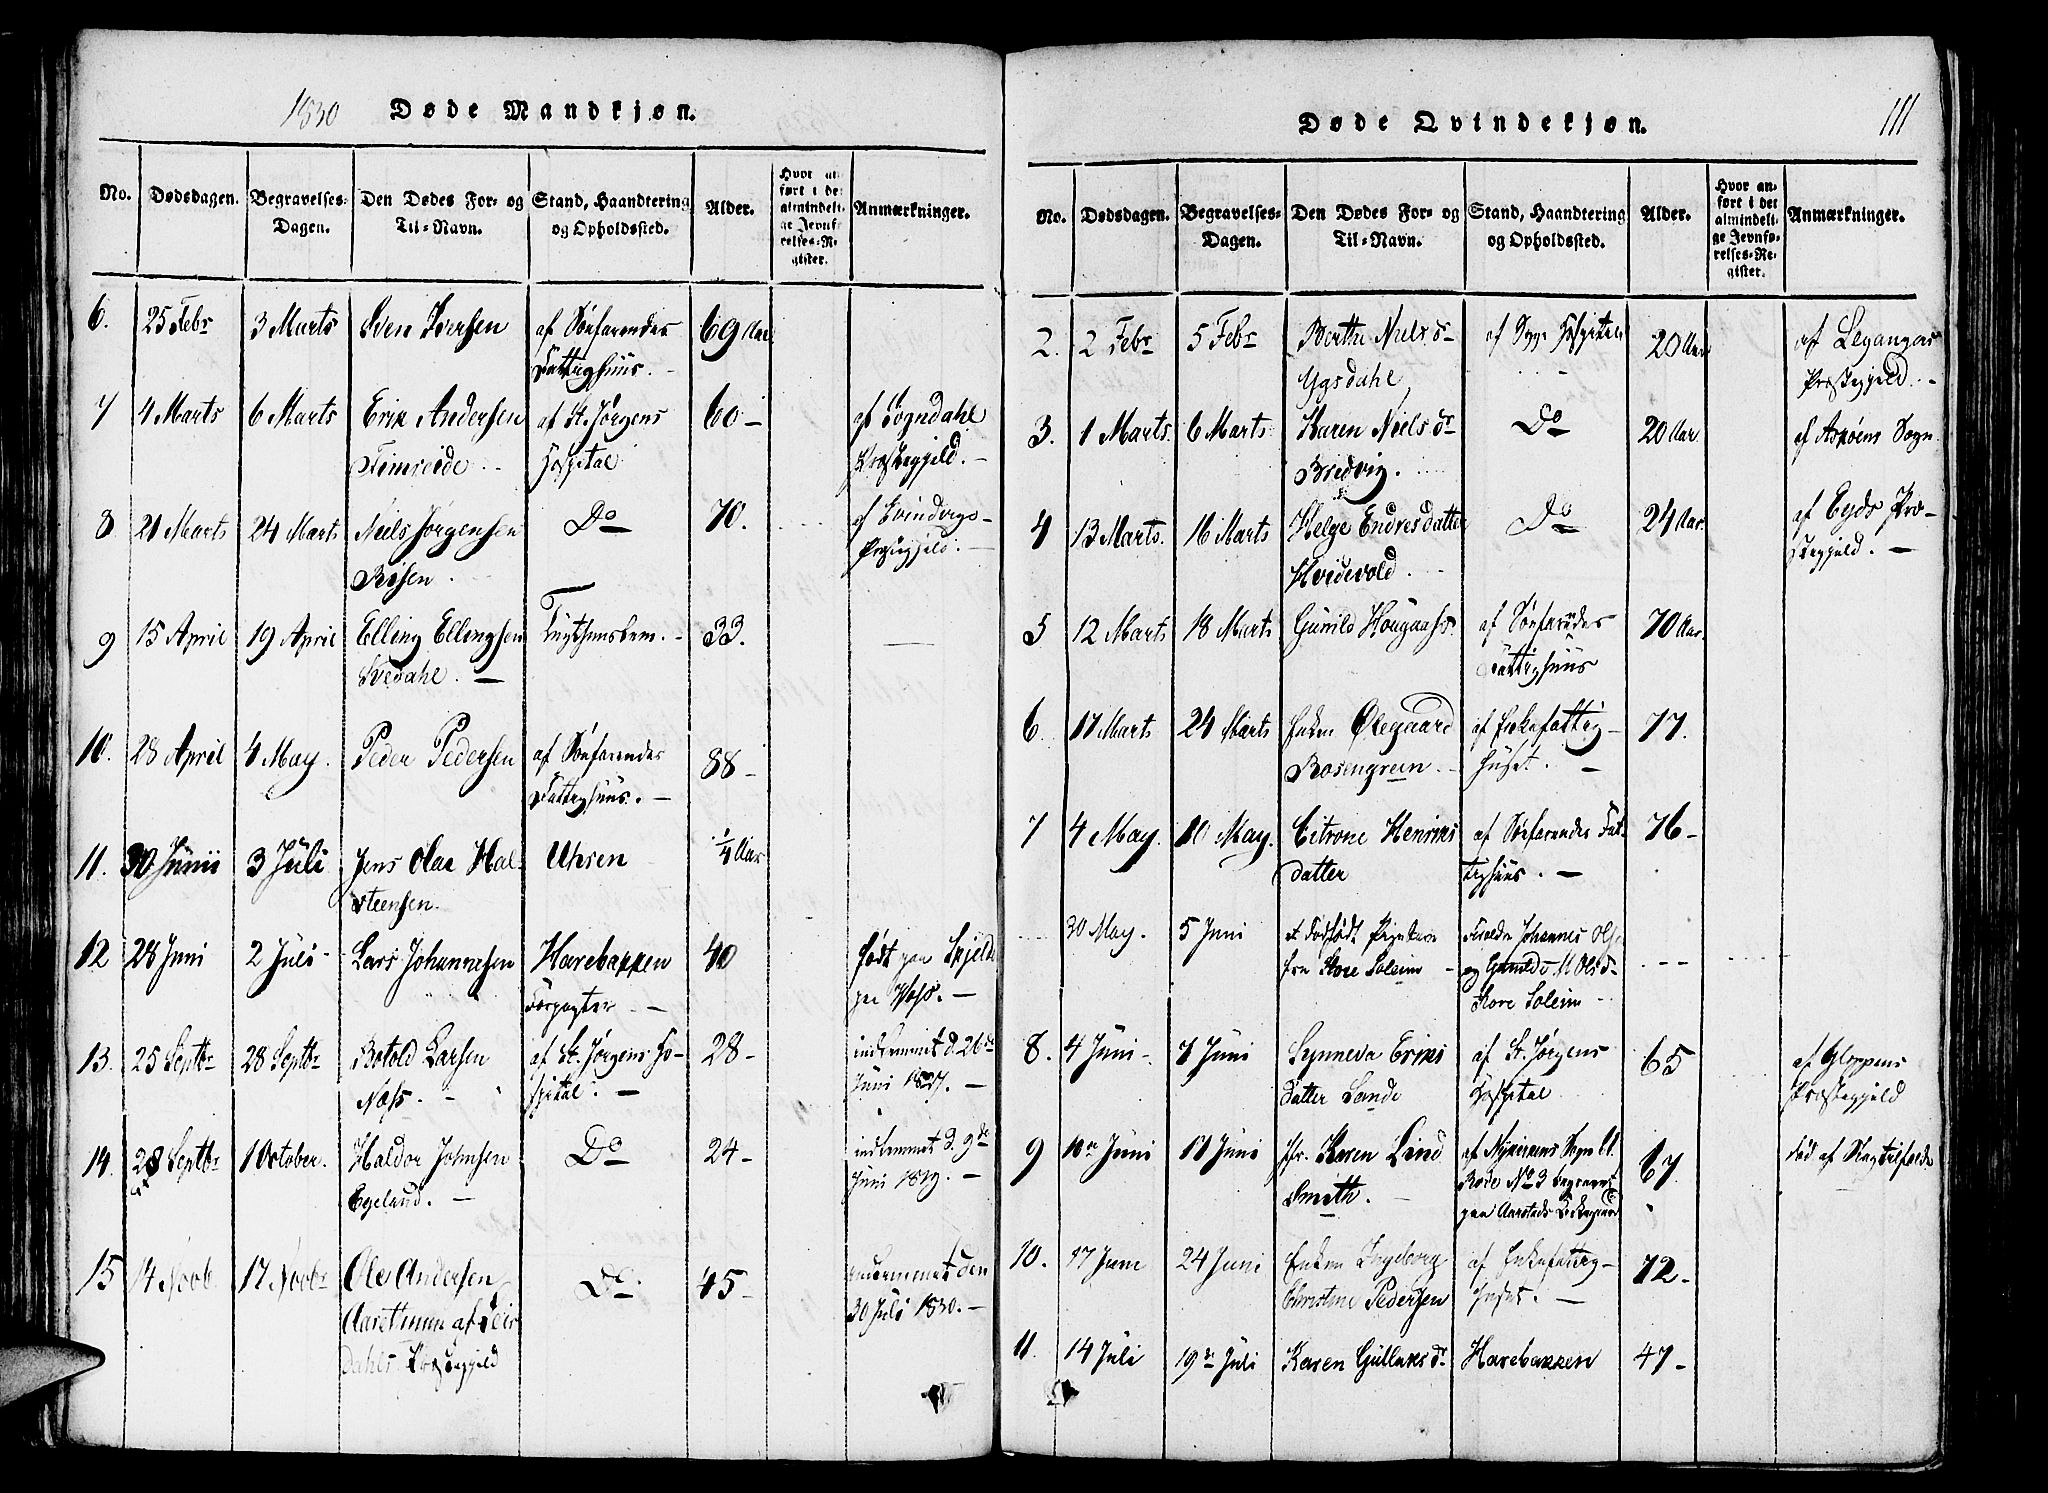 1830 Døde Mandkjøn.
No. Dødsdagen. Begravelses-Dagen. Den Dødes For- og Til-Navn. Stand, Haandtering og Opholdssted. Alder. Hvor anført i det almindelige Jevnførelses-Register. Anmærkninger.
6. 25 Febr 3 Marts Sven Iversen af Søefarendes 69 Aar
Fattighuus. –
7 4 Marts 6 Marts Erik Andersen af St. Jørgens 60 – af Sogndahls
Timreide Hospital Præstegjeld. –
8 21 Marts 24 Marts Niels Jørgensen Do 70. af Evindvigs
Risen. Præstegjeld. –
9 15 April 19 April Elling Ellingsen 33. —
Svedahl. –
10. 28 April 4 May. Peder Pedersen af Søefarendes 88 –
Fattighuus. –
11. 30 Junii 3 Juli Jens Olai Hal- Uhren 1/4 Aar
steensen.
12 28 Juni 2 Juli Lars Johannesen Harebakken 40 født paa Skjelde
Forpagter – paa Voss. –
13. 25 Septbr 28 Septbr Botold Larsen af St. Jørgens Ho- 28 – indlemmet d. 26de
Næss. – spital. – Juni 1827. –
14. 28 Septbr 1 October. Haldor Johnsen Do 24 – indlemmet d. 9de
Egeland. – Juni 1829. –
15 14 Novb. 17 Novbr Ole Andersen Do. 45 – indlemmet den
af Leir 30 Juli 1830. –
dahls Præstegjeld
111
Døde Qvindekjøn.
No. Dødsdagen. Begravelses-Dagen. Den Dødes For- og Til-Navn. Stand, Haandtering og Opholdssted. Alder. Hvor anført i det almindelige Jevnførelses-Register. Anmærkninger.
2. 2 Febr 5 Febr Berthe Niels d– af Hospitale 20 Aar af Leganger
Ygsdahl Præstegjeld. –
3. 1 Marts. 6 Marts Karen Niels dr Do 20 Aar. af Askøens Sogn
Bredvig.
4 13 Marts. 16 Marts Helge Endresdatter Do 24 Aar. af Eyds Præ-
Hvidevold. stegjeld. –
5 12 Marts 18 Marts Gunild Hougaas. af Søefarendes 70 Aar.
Fattighuus
6 17 Marts 24 Marts Enken Olegaard af Enkefattig- 77.
Rosengreen. – huset. –
7 4 May. 10 May. Citrone Henriks af Søefarendes Fat- 76 –
datter tighuus. –
30 May. 5 Juni et dødfødt Pigebarn Forældre Johannes Ols.
fra Store Soleim og Gunilde M Olsd– - - -
Store Soleim
8. 4 Juni – 7 Juni Synneva Eriks af St. Jørgens 65 af Gloppens
datter Lande Hospital Præstegjeld
9 10de Juni 18 Juni Jfr. Karen Lind af Nykirkens Sogn 67 fød af
Smith. Rode No 3 begravet
paa Aarstads Kirkegaard
10. 17 Juni 24 Juni Enken Ingeborg af Enkefattig- 72 –
Christine Pedersen huset. –
11. 14 Juli 19de Juli Karen Gullaks dr Harebakken 47 –